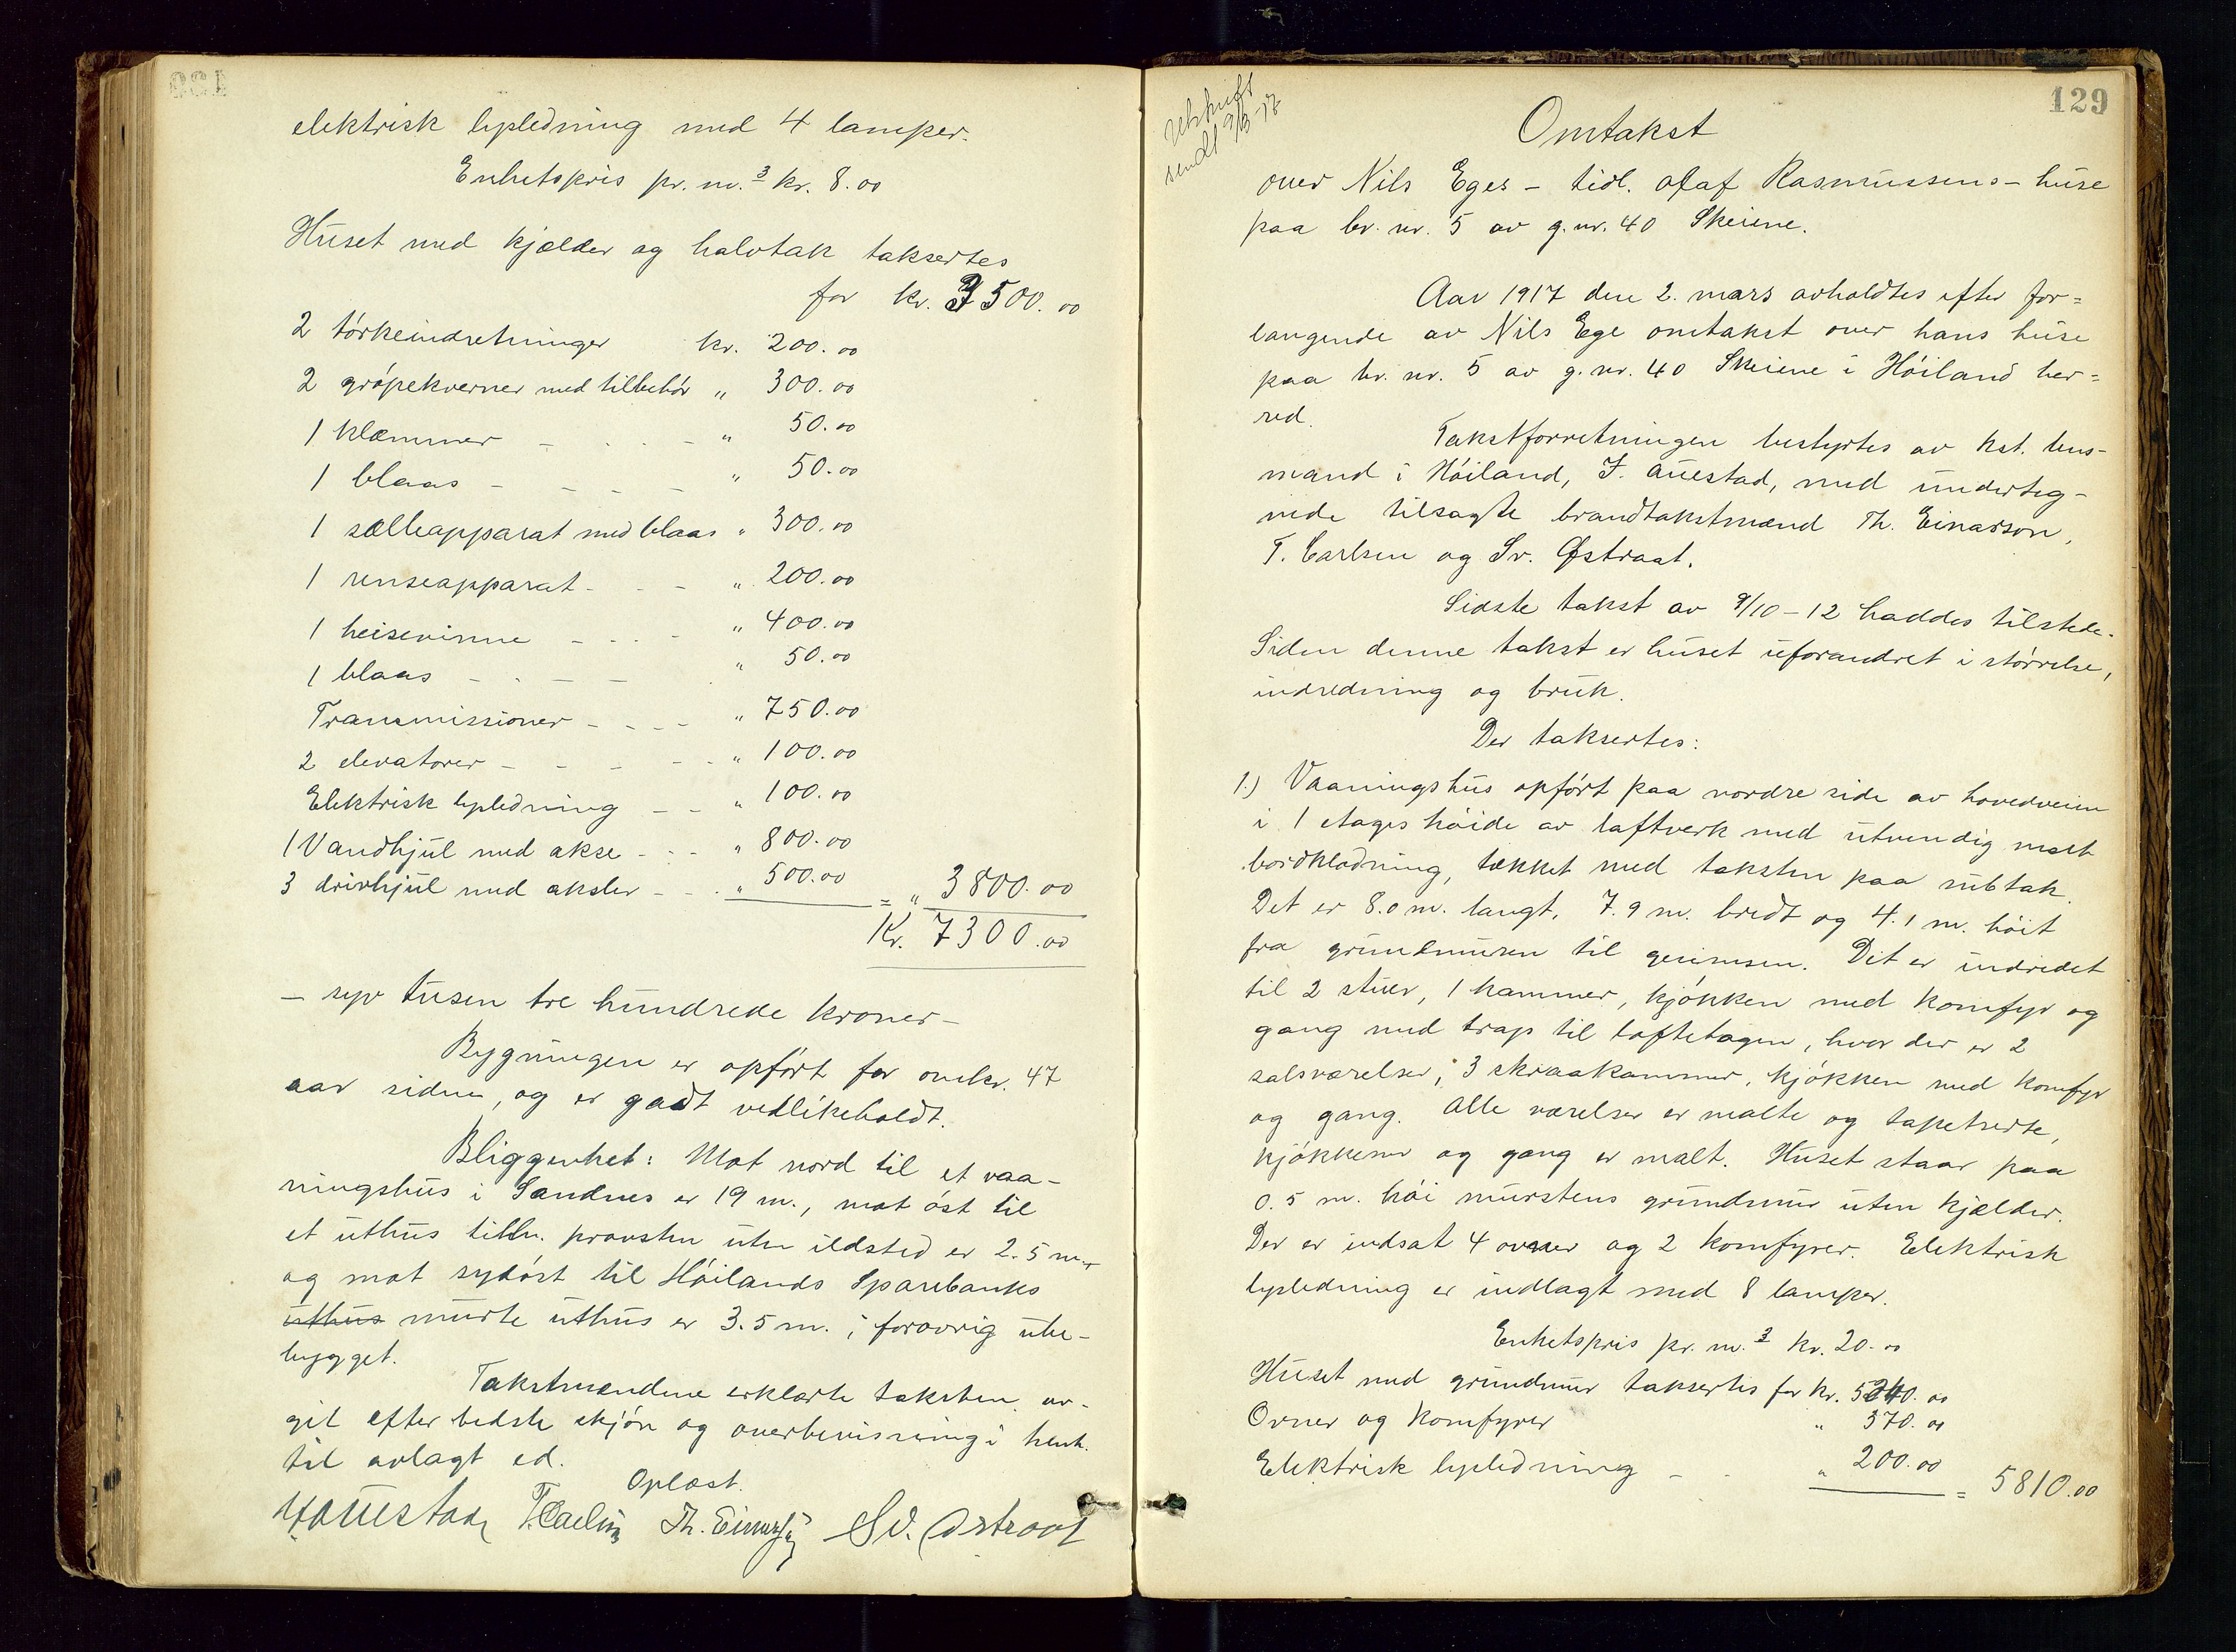 elektrisk lysledning med 4 lamper.
Enhetspris pr. m.3 kr. 8.00
Huset med kjælder og halvtak taksertes
for kr. 3500.00
2 törkeindretninger kr. 200.00
2 gröpekverner med tilbehör " 300.00
1 klæmmer - . . - " 50.00
1 blaas - - - - " 50.00
1 sælleapparat med blaas " 300.00
1 renseapparat - - - " 200.00
1 heisevinne - - - - " 400.00
1 blaas - - - - " 50.00
Transmissioner - - - - " 750.00
2 elevatorer - - - - - " 100.00
Elektrisk lysledning - - " 100.00
1 Vandhjul med akse - - - " 800.00
3 drivhjul med aksler - - . " 500.00 = " 3800.00
Kr. 7300.00
- syv tusen tre hundrede kroner -
Bygningen er opfört for omkr. 47
aar siden, og er godt vedlikeholdt.
Bliggenhet: Mot nord til et vaa-
ningshus i Sandnes er 19 m., mot öst til
et uthus tilh. provsten uten ildsted er 2.5 m.
og mot sydöst til Höilands Sparebanks
uthus murte uthus er 3.5 m. ; forövrig ube-
bygget.
Takstmændene erklærte taksten av-
git efter bedste skjön og overbevisning i henh.
til avlagt ed.
Oplæst.
Auestad T. Carlsen Th. Einarson Sv. Østraat
129
Utskrift
sendt 9/3-17
Omtakst
over Nils Eges - tidl. Olaf Rasmussens - huse
paa br. nr. 5 av g. nr. 40 Skeiene.
Aar 1917 den 2. mars avholdtes efter for=
langende av Nils Ege omtakst over hans huse
paa br. nr. 5 av g. nr. 40 Skeiene i Höiland her=
red.
Takstforretningen bestyrtes av kst. lens-
mand i Höiland, J. Auestad, med underteg-
nede tilsagte brandtakstmænd Th. Einarson,
T. Carlsen og Sv. Østraat.
Sidste takst av 9/10-12 haddes tilstede.
Siden denne takst er huset uforandret i störrelse,
indredning og bruk.
Der taksertes:
1.) Vaaningshus opfört paa nordre side av hovedveien
i 1 etages höide av laftverk med utvendig malt
bordklædning, tækket med taksten paa subtak.
Det er 8.0 m. langt, 7.9 m. bredt og 4.1 m. höit
fra grundmuren til gesimsen. Det er indredet
til 2 stuer, 1 kammer, kjökken med komfyr og
gang med trap til loftetagen, hvor der er 2
salsværelser, 3 skraakammer, kjökken med komfyr
og gang. Alle værelser er malte og tapetserte,
kjökkener og gang er malt. Huset staar paa
0.5 m. höi murstens grundmur uten kjælder.
Der er indsat 4 ovner og 2 komfyrer. Elektrisk
lysledning er indlagt med 8 lamper.
Enhetspris pr. m.3 kr. 20.00
Huset med grundmur taksertes for kr. 5240.00
Ovner og komfyrer " 370.00
Elektrisk lysledning - - " 200.00 = 5810.00